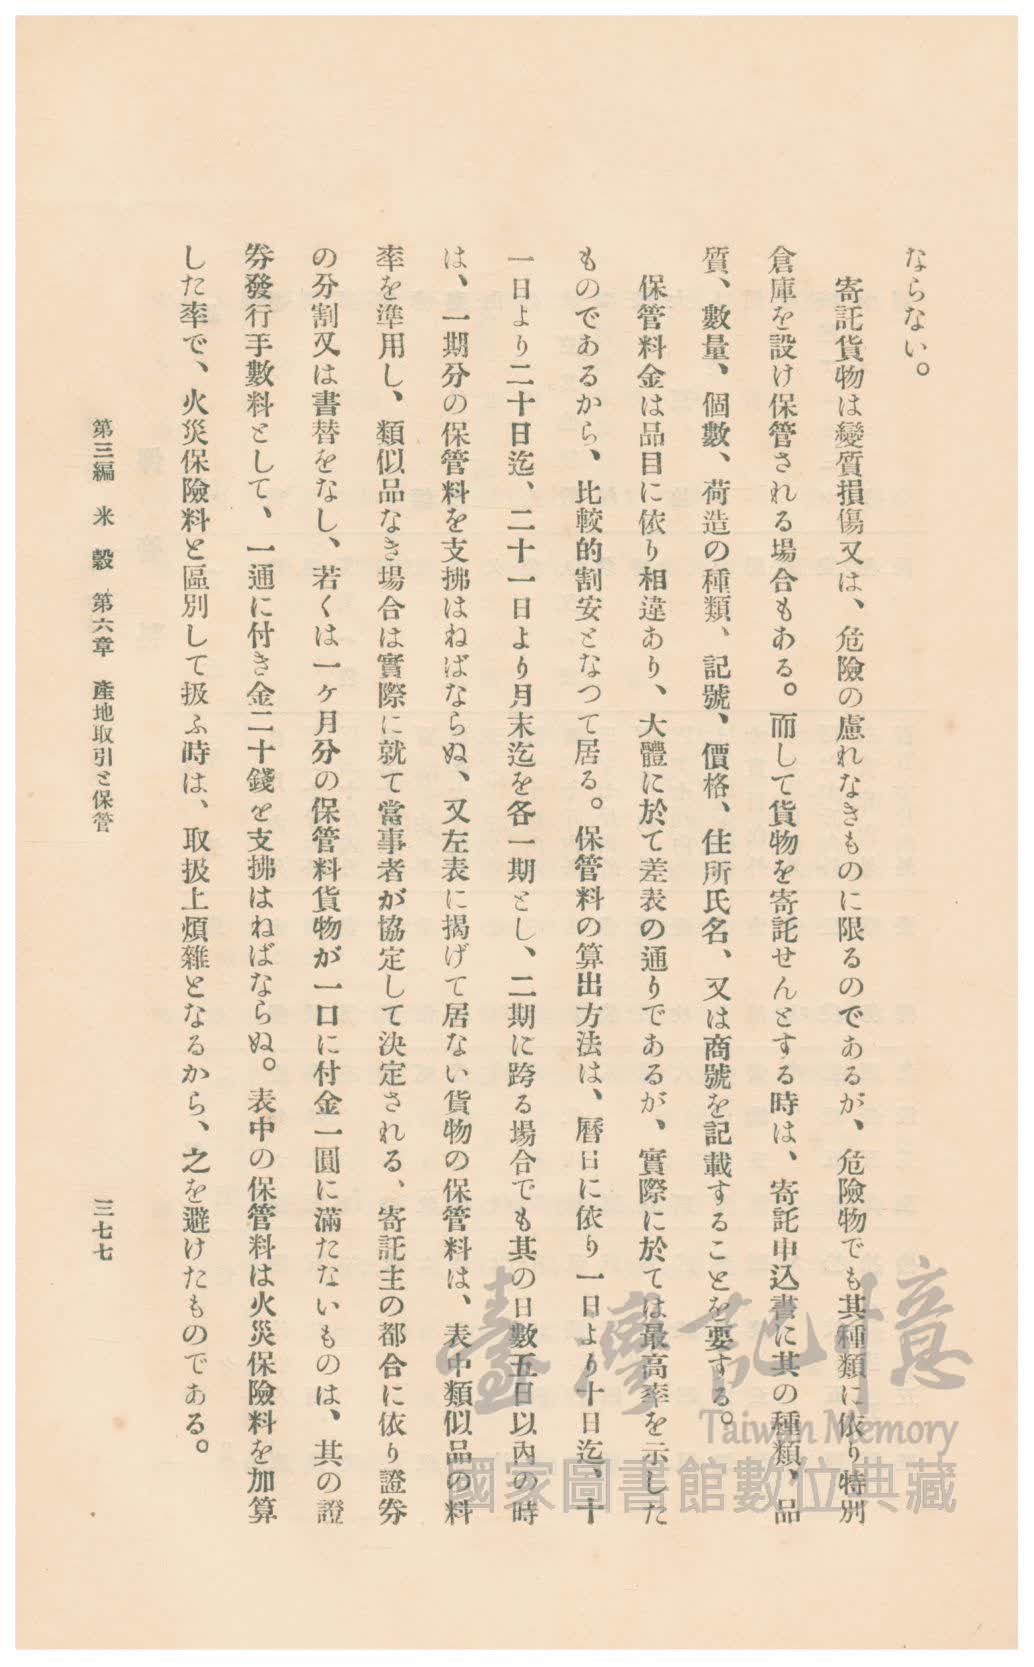 ならない。
寄託貨物は變質損傷又は、危險の慮れなきものに限るのであるが、危險物でも其種類に依り特別
倉庫を設け保管される場合もある。而して貨物を寄託せんとする時は、寄託申込書に其の種類、品
質、數量、個數、荷造の種類、記號、價格、住所氏名、又は商號を記載することを要する。
保管料金は品目に依り相違あり、大體に於て差表の通りであるが、實際に於ては最高率を示した
ものであるから、比較的割安となつて居る。保管料の算出方法は、曆日に依り一日より十日迄、十
一日より二十日迄、二十一日より月末迄を各一期とし、二期に跨る場合でも其の日數五日以內の時
は、一期分の保管料を支拂はねばならぬ、又左表に揭げて居ない貨物の保管料は、表中類似品の料
率を準用し、類似品なき場合は實際に就て當事者が協定して決定される、寄託主の都合に依り證券
の分割又は書替をなし、若くは一ヶ月分の保管料貨物が一口に付金一圓に滿たないものは、其の證
券發行手數料として、一通に付き金二十錢を支拂はねばならぬ。表中の保管料は火災保險料を加算
した率で、火災保險料と區別して扱ふ時は、取扱上煩雜となるから、之を避けたものである。
第三編 米穀 第六章 產地取引と保管
三七七
臺灣記憶
Taiwan Memory
國家圖書館數位典藏